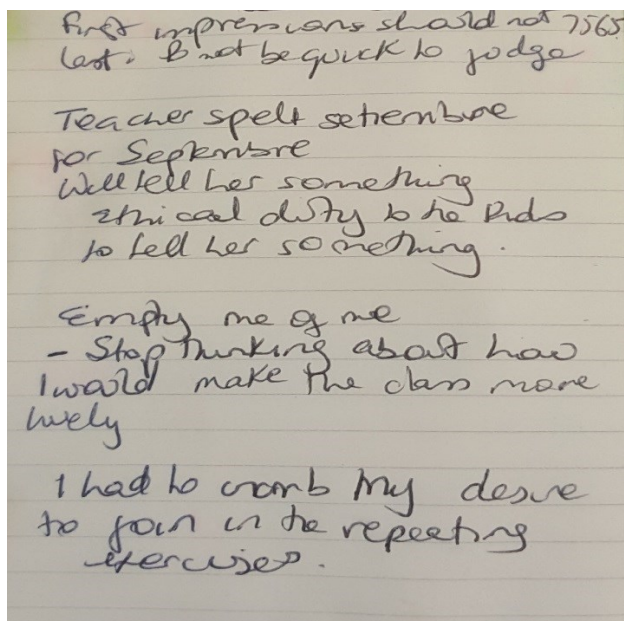 First impressions should not 7565
last. B not be quick to jodge
Teacher spelt setiembre
for Septembre
Will tell her something
ethical duty to the kids
to tell her something.
Empty me of me
- Stop thinking about how
I would make the class more
lively
I had to my desire
to join in the repeating
exercises.